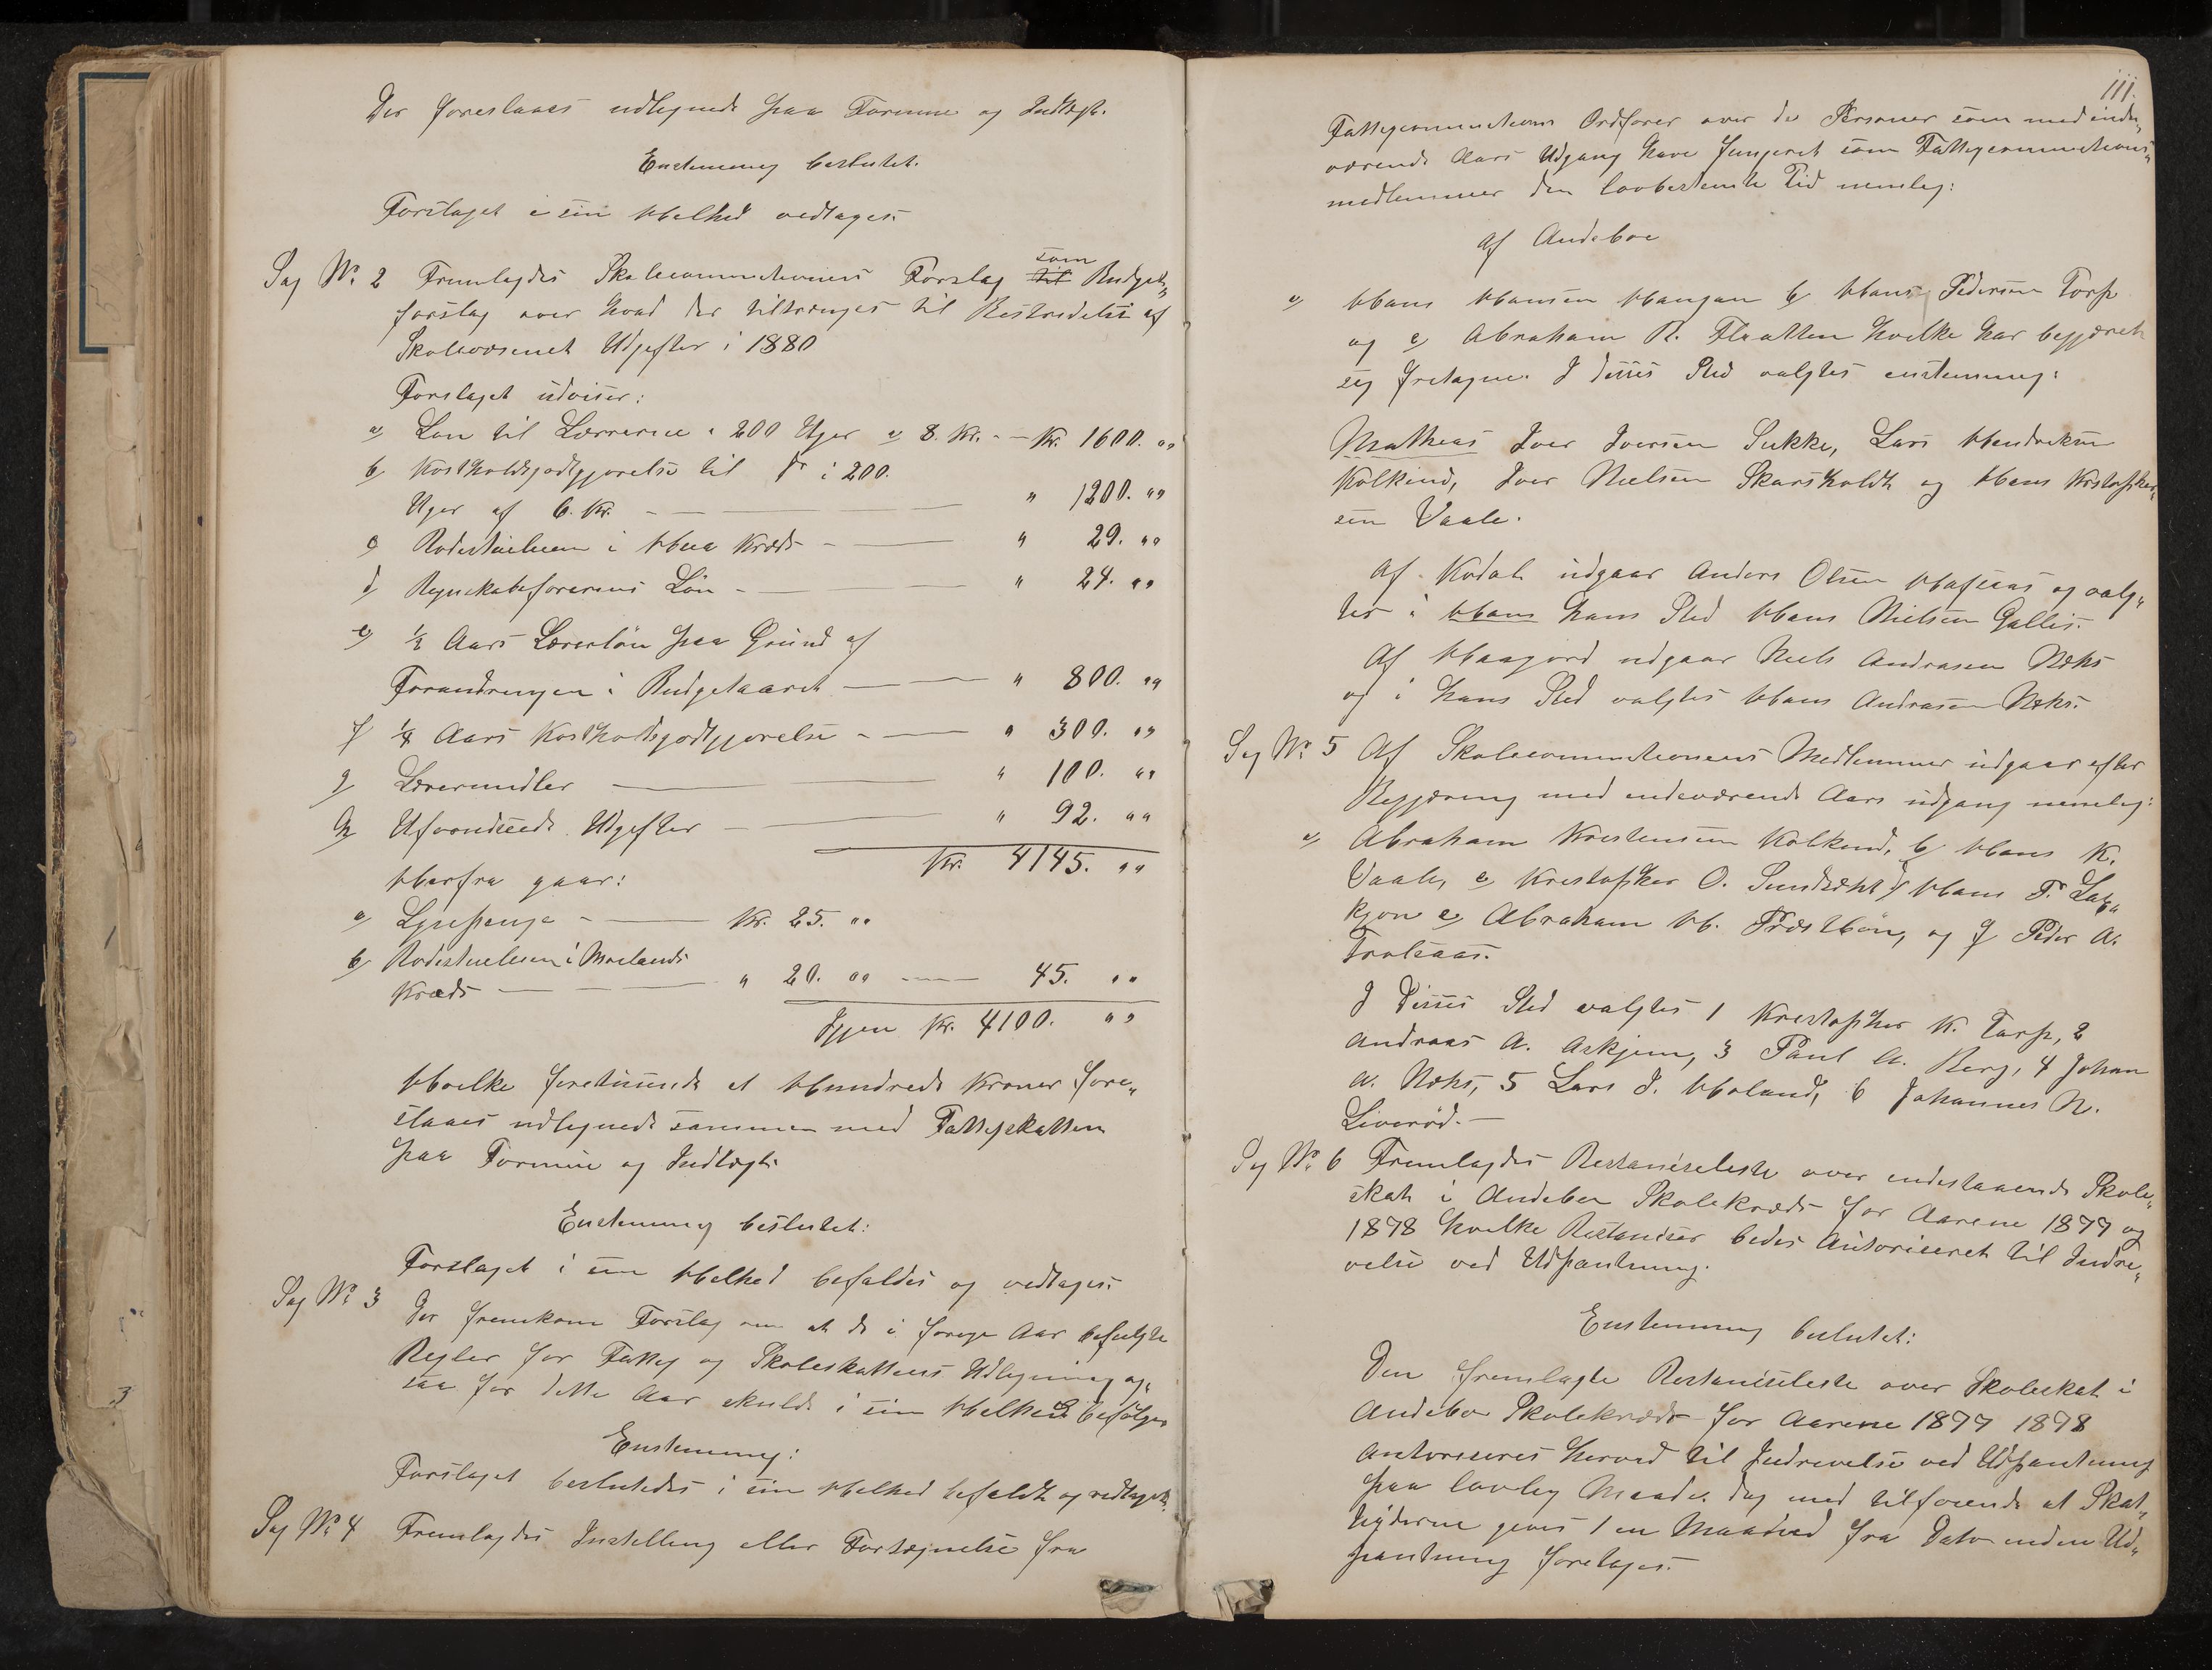 Der foreslaaes udlignede paa Formue og Indtægt.
Enstemmig besluttet.
Forslaget i sin Helhed vedtages.
Sag No 2 Fremlagdes Skolecommissionens Forslag til som Budget„
forslag over hvad der tiltrænges til Bestridelse af
Skolevæsenet Udgifter i 1880
Forslaget udviser:
a) Løn til Lærerne i 200 Uger a 8. Kr. - — Kr. 1600. "
b) Kostholdsgodtgjørelse til do i 200.
Uger af 6. Kr. - — " 1200. "
c) Rodestueleien i Kreds - — " 29. "
d) Regnskabsførerens Løn - — " 24. "
e) ½ Aars Lærerløn paa Grund af
Forandringen i Budgetaaret — " 800. "
f) ¼ Aars Kostholdsgodtgjørelse - — " 300. "
g) Læremidler — " 100. "
h) Uforudseede Udgifter — " 92. "
Kr. 4145. "
Herfra gaar:
a) Lysepenge - — Kr. 25. "
b) Rodestueleien i Møelands
Kreds — " 20. " — 45. "
Igjen Kr. 4100. "
Hvilke firetusinde et Hundrede Kroner fore„
slaaes udlignede sammen med Fattigskatten
paa Formue og Indtægt.
Enstemmig besluttet:
Forslaget i sin Helhed bifaldes og vedtages.
Sag No 3 Der fremkom Forslag om at de i forrige Aar befulgte
Regler for Fattig og Skoleskattens Udligning og„
saa for dette Aar skulde i sin Helhed befølges
Enstemmig:
Forslaget besluttedes i sin Helhed bifaldt og vedtaget.
Sag No 4 Fremlagdes Instilling eller Fortegnelse fra
111.
Fattigcommissionens Ordfører over de Personer som med inde„
værende Aars Udgang have fungeret som Fattigcommissions„
medlemmer den lovbestemte Tid nemlig:
Af Andeboe
a) Hans Hansen Haugan b) Hans Pedersen Torp
og c) Abraham R. Flaatten hvilke har begjæret
sig fretagne. I disses Sted valgtes enstemmig:
Mathias Iver Iversen Sukke, Lars Hendriksen
Kolkind, Iver Nielsen Skarsholdt og Hans Kristopher„
sen Vaale.
Af Kodal udgaar Anders Olsen Hafsaas og valg„
tes i Hans hans Sted Hans Nielsen Gallis.
Af Haagord udgaar Niels Andrasen Nøks
og i hans Sted valgtes Hans Andrasen Nøks.
Sag No 5 Af Skolecommissionens Medlemmer udgaar efter
Begjæring med indeværende Aars udgang nemlig:
a) Abraham Kristensen Kolkind, b) Hans K.
Vaale, c) Kristopher O. Sundseht d) Hans F. Lak„
kjøn e) Abraham H. Præstbøn, og f) Peder A.
Trolsaas.
I Disses Sted valgtes 1 Kristopher K. Torp, 2
Andreas A. Askjem, 3 Paul A. Berg, 4 Johan
A. Nøks, 5 Lars J. Høland, 6 Johannes N.
Liverød. —
Sag No 6 Fremlagdes Restanseliste over indestaaende Skole„
skat i Andeboe Skolekreds for Aarene 1877 og
1878 hvilke Restanser bedes Autoriseret til Inddre„
velse ved Udpantning.
Enstemmig besluttet:
Den fremlagte Restanseliste over Skoleskat i
Andeboe Skolekreds for Aarene 1877 1878
autoriseres herved til Inddrevelse ved Udpantning
paa lovlig Maade. dog med tilføiende at Skat„
tyderne gives 1 en Maaned fra Dato inden Ud„
pantning foretages.